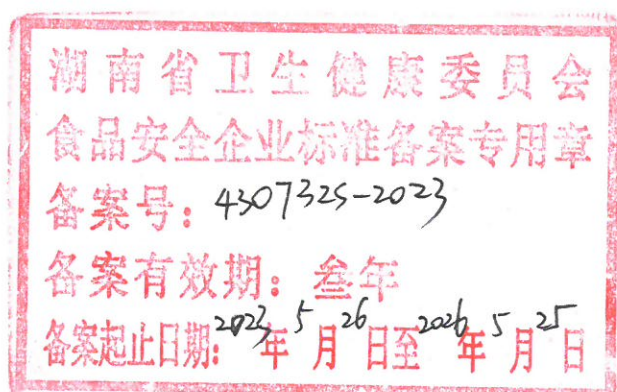 湖南省卫生健康委员会
食品安全企业标准备案专用章
备案号：4307325-2023
备案有效期：叁年
备案起止日期：2023年5月26日至2026年5月25日